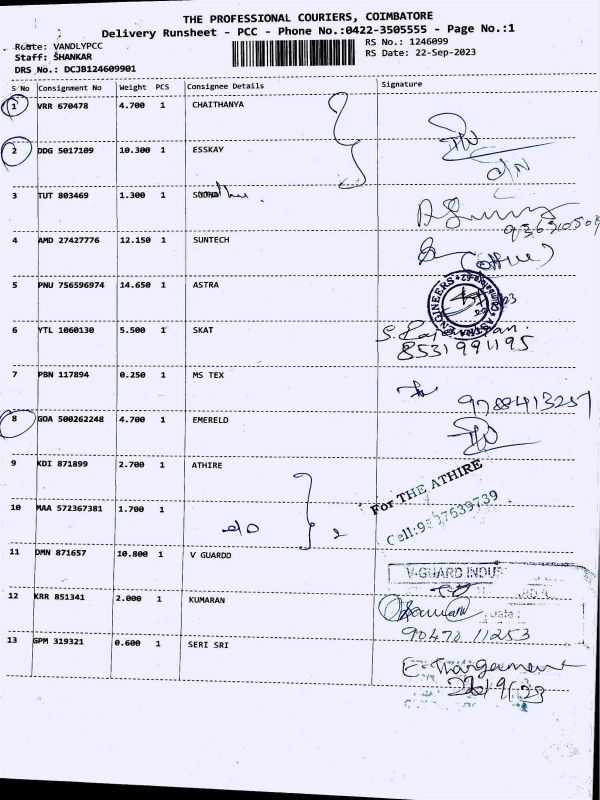 THE PROFESSIONAL COURIERS, COIMBATORE
Delivery Runsheet - PCC - Phone No.:0422-3505555 - Page No.:1
Route: VANDLYPCC
RS No.: 1246099
Staff: SHANKAR
RS Date: 22-Sep-2023
DRS No.: DCJB124609901
S No Consignment No Weight PCS Consignee Details Signature
1 VRR 670478 4.700 1 CHAITHANYA
2 DDG 5017109 10.300 1 ESSKAY
3 TUT 803469 1.300 1
4 AMD 27427776 12.150 1 SUNTECH
5 PNU 756596974 14.650 1 ASTRA
ASTRA ENGINEERS
6 YTL 1060130 5.500 1 SKAT
8531991195
7 PBN 117894 0.250 1 MS TEX
9788413257
8 GOA 500262248 4.700 1 EMERELD
9 KDI 871899 2.700 1 ATHIRE
For THE ATHIRE
10 MAA 572367381 1.700 1
11 DMN 871657 10.800 1 V GUARDD
V-GUARD
12 KRR 851341 2.000 1 KUMARAN
90470 11253
13 GPM 319321 0.600 1 SERI SRI